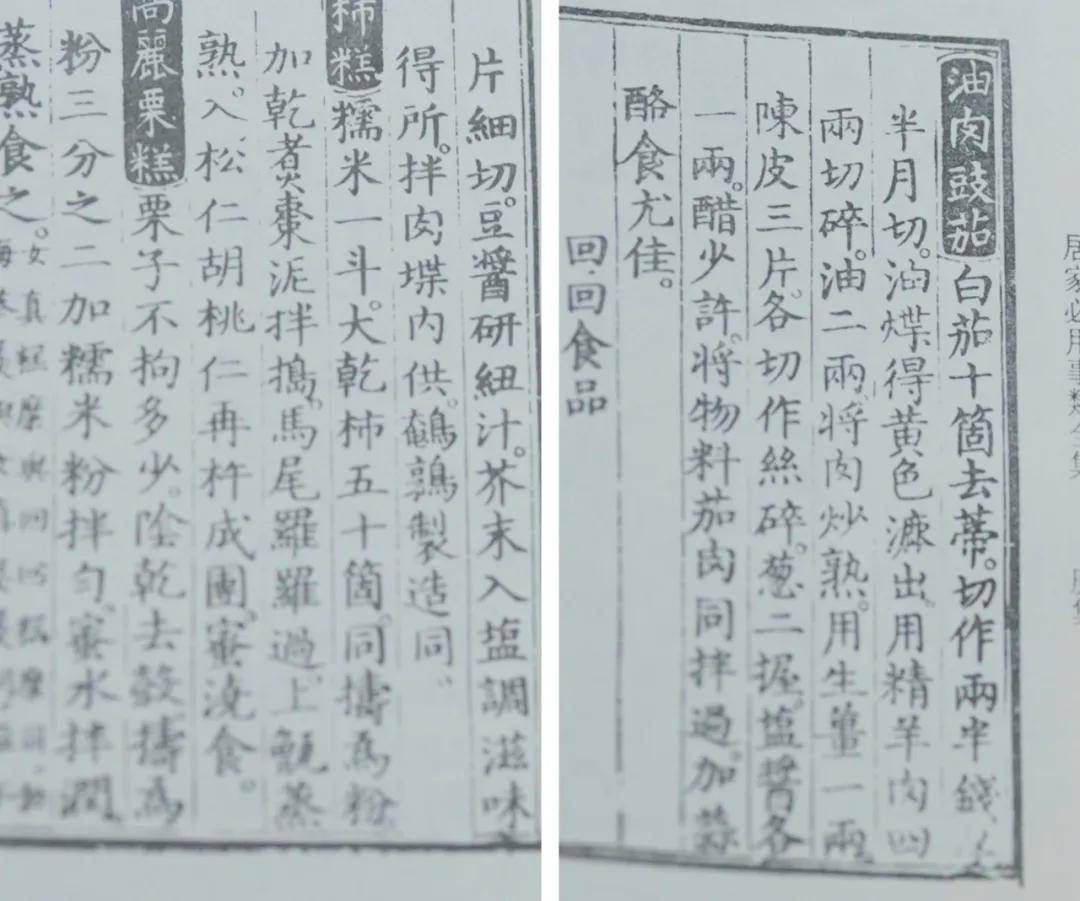 居家必用事類全集
油肉豉茄 白茄十箇去蒂。切作兩半錢
半月切。油煠得黄色漉出。用精羊肉四
兩切碎。油二兩。將肉炒熟。用生薑一兩
陳皮三片。各切作絲碎。葱二握。塩醬各
一兩。醋少許。將物料茄肉同拌過。加蒜
酪食尤佳。
回回食品
片細切。豆醬研細汁。芥末入塩調滋味
得所。拌肉堞内供。鵪鶉製造同。
柿糕 糯米一斗。大乾柿五十箇。同擣爲粉
加乾煮棗泥拌搗。馬尾羅羅過。上甑蒸
熟。入松仁胡桃仁再杵成團。蜜澆食。
高麗栗糕 栗子不拘多少。陰乾去殼擣爲
粉三分之二加糯米粉拌匀。蜜水拌潤
蒸熟食之。女真